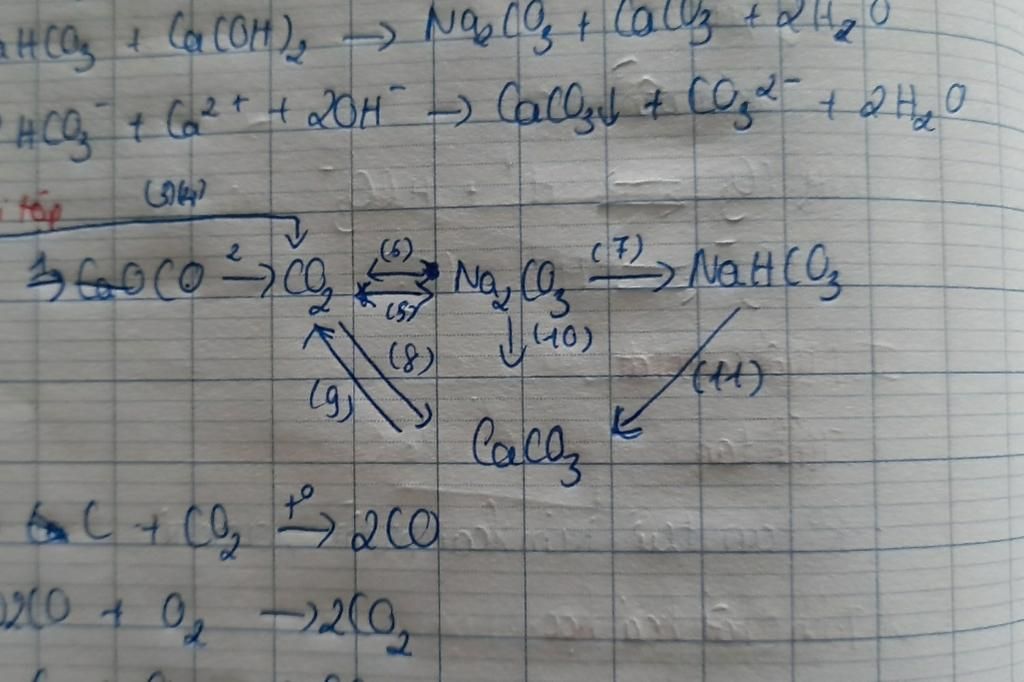 aHCO₃ + Ca(OH)₂ → Na₂CO₃ + CaCO₃ + 2H₂O
HCO₃⁻ + Ca²⁺ + 2OH⁻ → CaCO₃↓ + CO₃²⁻ + 2H₂O
tập
CO 2→ CO₂ (6)⇄(5) Na₂CO₃ (7)→ NaHCO₃
(8) (10)
(9) (11)
CaCO₃
C + CO₂ t°→ 2CO
2CO + O₂ → 2CO₂